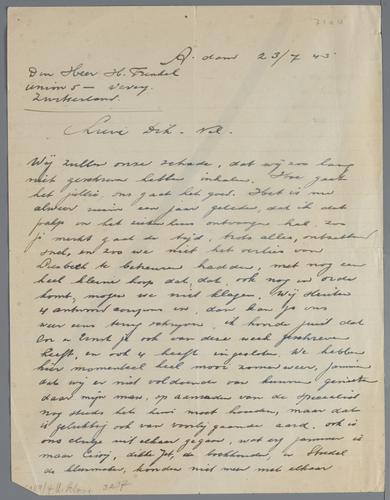 A. dam 23/7 43
Den Heer H. Frenkel
Union 5 — Vevey.
Zwitserland.
Lieve Dik. Nel.
Wij zullen onze schade, dat wij zoo lang
niet geschreven hebben inhalen. Hoe gaat
het jullie, ons gaat het goed. Het is nu
alweer ruim een jaar geleden, dat ik dat
in het ziekenhuis ontvangen had, zoo
je merkt gaat de tijd, trots alles, ontzettend
snel, en zoo we niet het verlies van
Liesbeth te betreuren hadden, met nog een
heel kleine hoop dat, dat ook nog in orde
komt, mogen we niet klagen. Wij sluiten
4 antwoord coupons in, dan kan je ons
weer eens terug schrijven. Ik hoorde juist dat
Cor en Ernst je ook van deze week geschreven
heeft, en ook 4 heeft ingesloten. We hebben
hier momenteel heel mooi zomerweer, jammer
dat wij er niet voldoende van kunnen genieten
daar mijn man, op aanraden van de specialist
nog steeds het been moet houden, maar dat
is gelukkig ook van voorbijgaande aard. ook is
ons clubje uit elkaar gegaan, wat erg jammer is
maar de boekhouder, en
de konden niet meer met elkaar
32/7